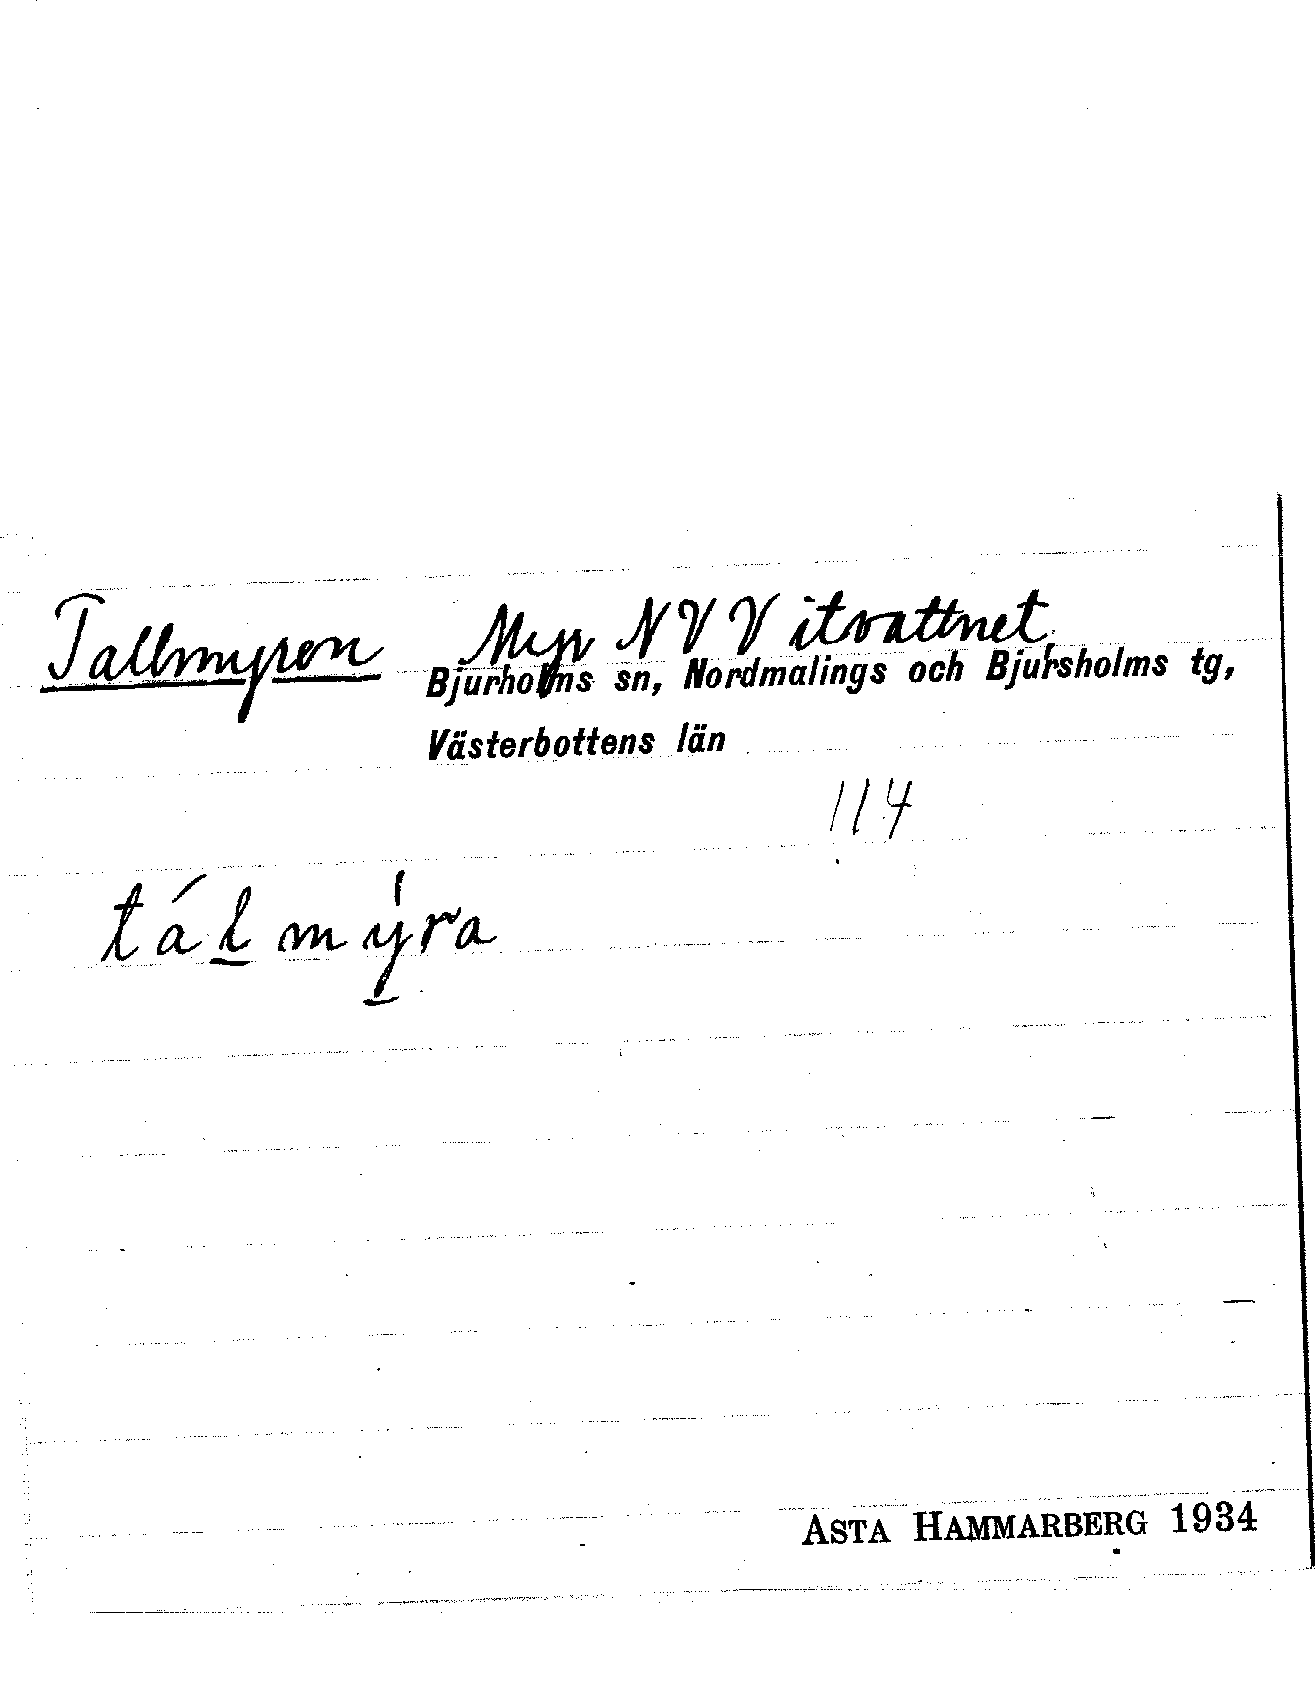 Tallmyren Myr NV Vitvattnet.
Bjurholms sn, Nordmalings och Bjurholms tg,
Västerbottens län
114
tálmýra
ASTA HAMMARBERG 1934